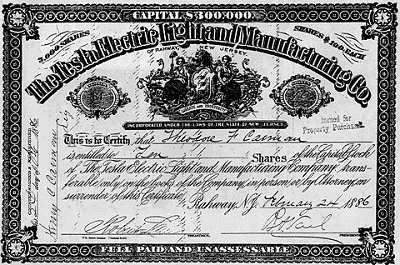 CAPITAL $300,000.
3,000 SHARES
SHARES $100 EACH
The Tesla Electric Light and Manufacturing Co.
OF RAHWAY NEW JERSEY.
INCORPORATED UNDER THE LAWS OF THE STATE OF NEW JERSEY.
Issued for
Property Purchased
This is to Certify that
is entitled to Ten Shares of the Capital Stock
of The Tesla Electric Light and Manufacturing Company, transferable
only on the books of the Company in person or by Attorney on
surrender of this Certificate.
Rahway NJ February 24 1886
FULL PAID AND UNASSESSABLE